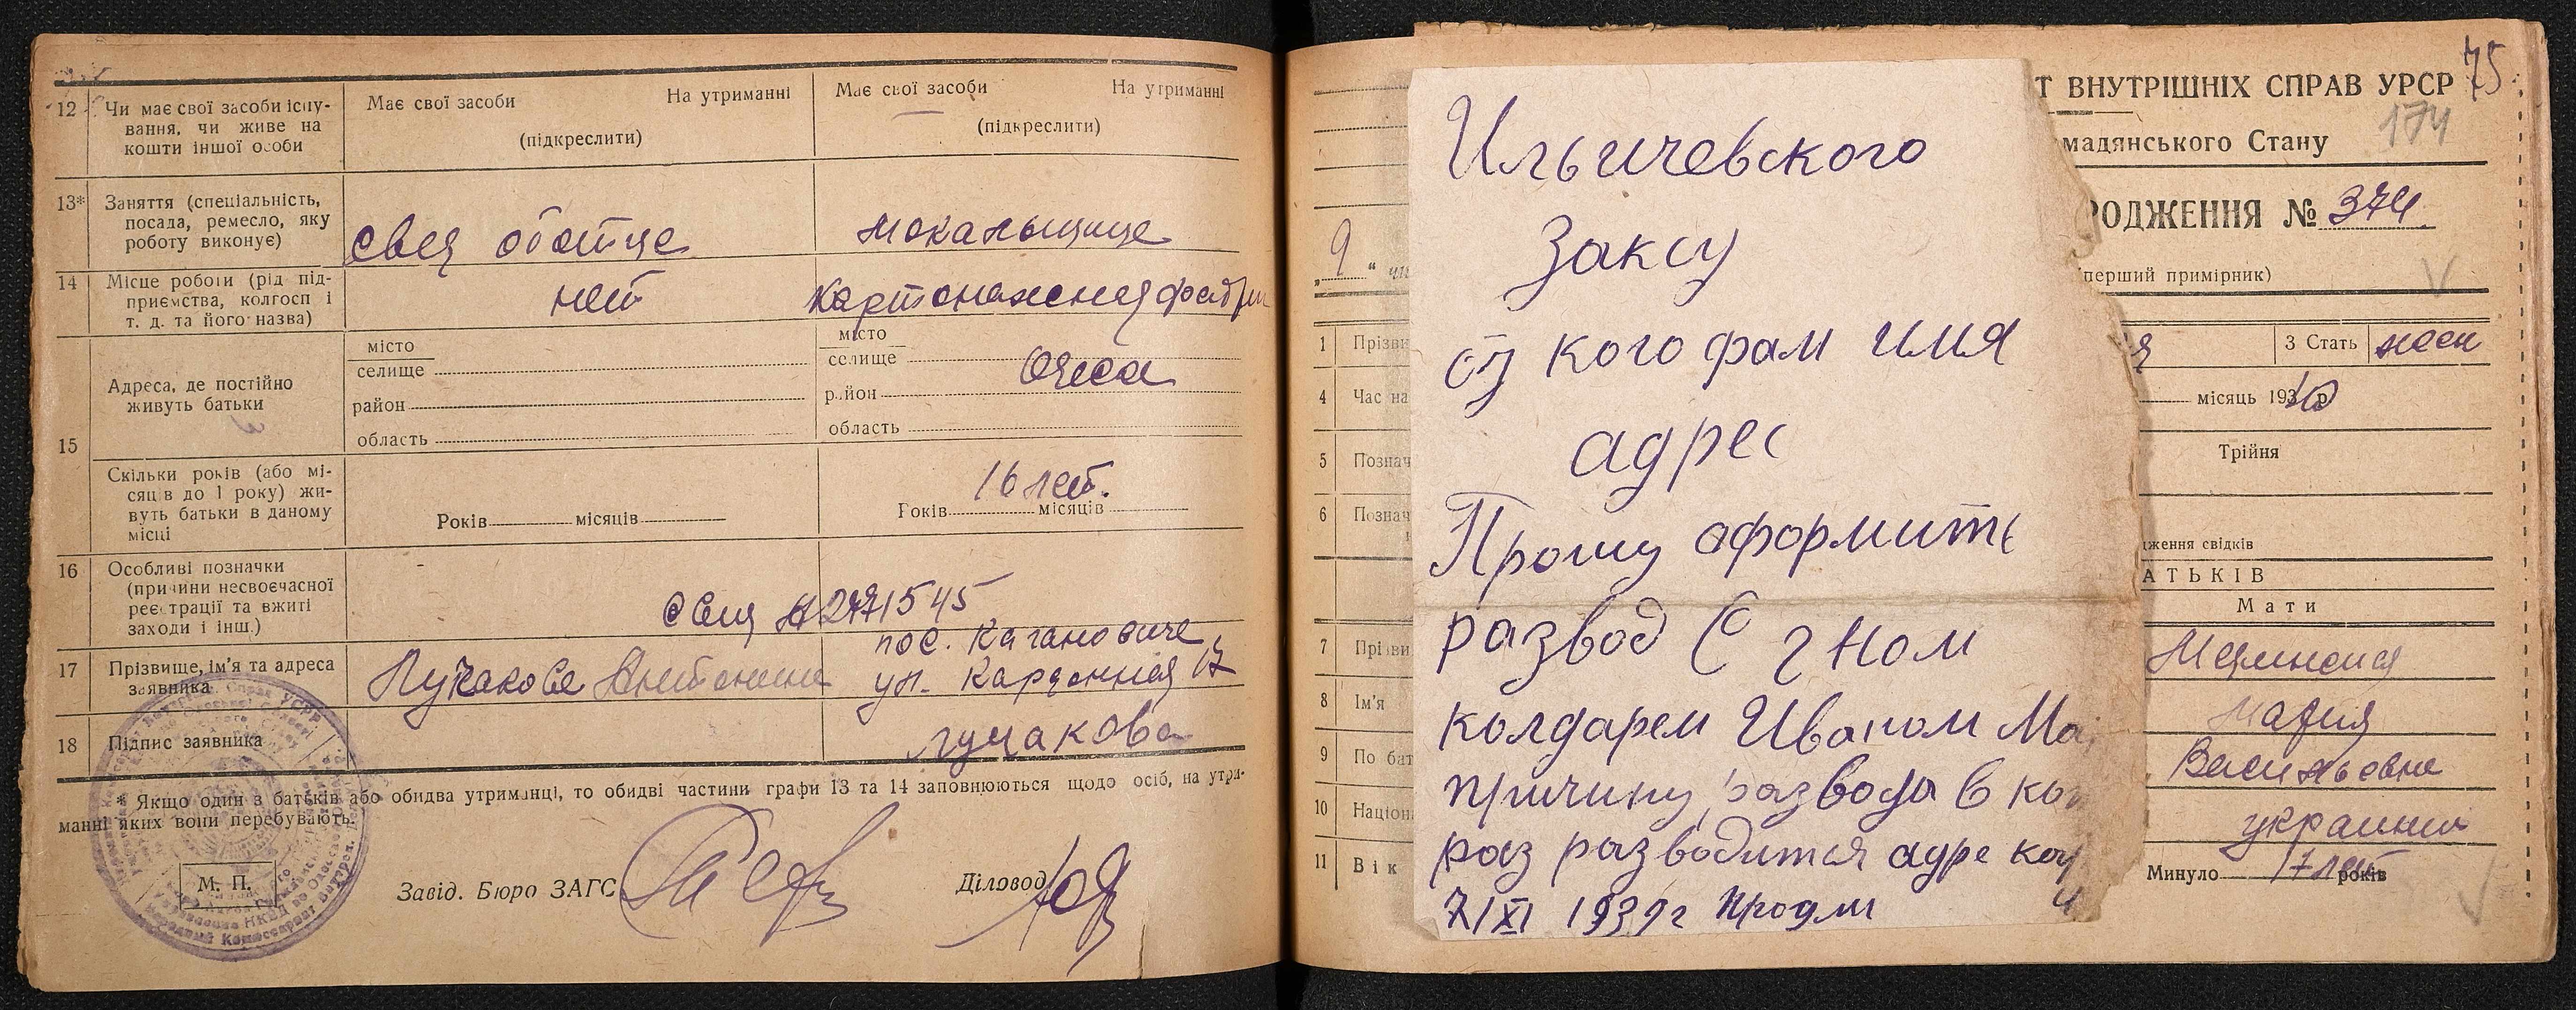 12 Чи має свої засоби існу-
вання, чи живе на
кошти іншої особи
Має свої засоби На утриманні
(підкреслити)
Має свої засоби На утриманні
(підкреслити)
13* Заняття (спеціальність,
посада, ремесло, яку
роботу виконує)
14 Місце роботи (рід під-
приємства, колгосп і
т. д. та його назва)
нет
Картонажная
15 Адреса, де постійно
живуть батьки
місто
селище
район
область
місто
селище
район
область
Одеса
Скільки років (або мі-
сяців до 1 року) жи-
вуть батьки в даному
місці
Років місяців
16 лет.
Років місяців
16 Особливі позначки
(причини несвоєчасної
реєстрації та вжиті
заходи і інш.)
17 Прізвище, ім'я та адреса
заявника
пос. Кагановича
ул. Кордонная 17
18 Підпис заявника
* Якщо один з батьків або обидва утриманці, то обидві частини графи 13 та 14 заповнюються щодо осіб, на утри-
манні яких вони перебувають.
М. П.
Завід. Бюро ЗАГС
Діловод
75
Т ВНУТРІШНІХ СПРАВ УРСР
174
мадянського Стану
РОДЖЕННЯ № 374
9 "
перший примірник)
1 Прізви
я
3 Стать
4 Час на
місяць 193 р
5 Познач
Трійня
6 Познач
дження свідків
АТЬКІВ
Мати
7 Прізви
8 Ім'я
Мария
9 По бат
Васильевна
10 Націон
украинка
11 Вік
Минуло 17 лет років
Ильичевского
Заксу
от кого фам имя
адрес
Прошу оформить
развод С г ном
колдарем Иваном Ма
причину развода в ко
раз разводится адре
7/XI 1939 г